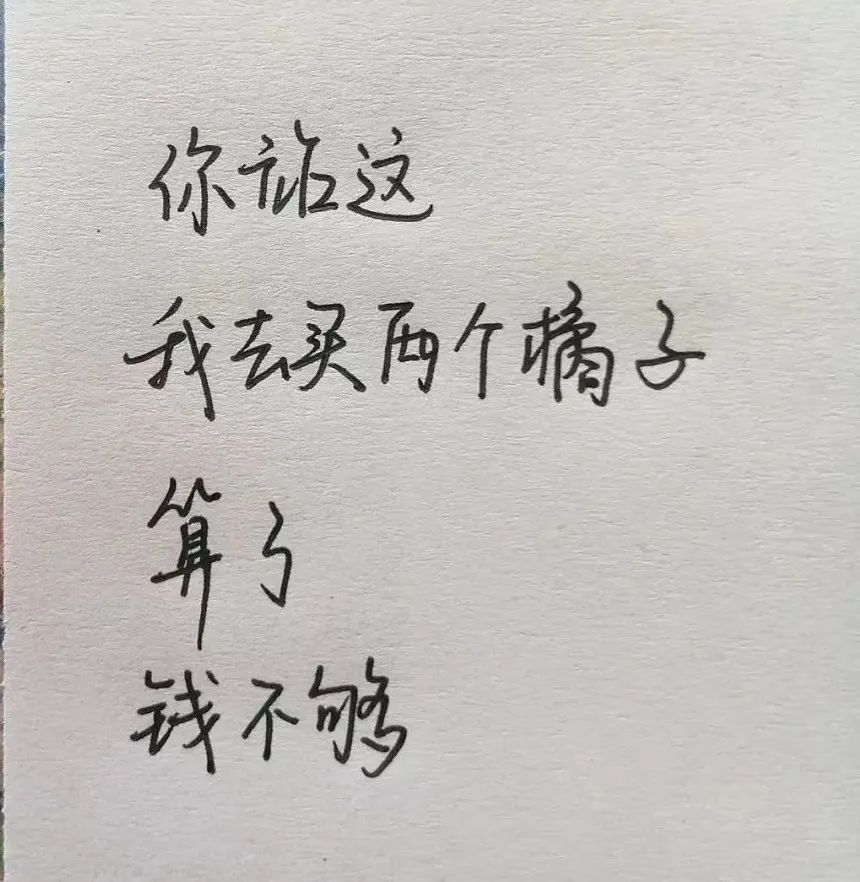 你站这
我去买两个橘子
算了
钱不够